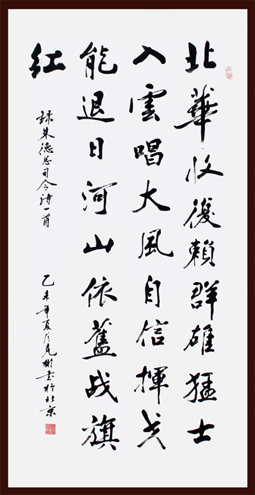 北華收復賴群雄猛士
入雲唱大風自信揮戈
能退日河山依舊战旗
红
録朱德总司令詩一首
乙未年夏月克彬书於北京